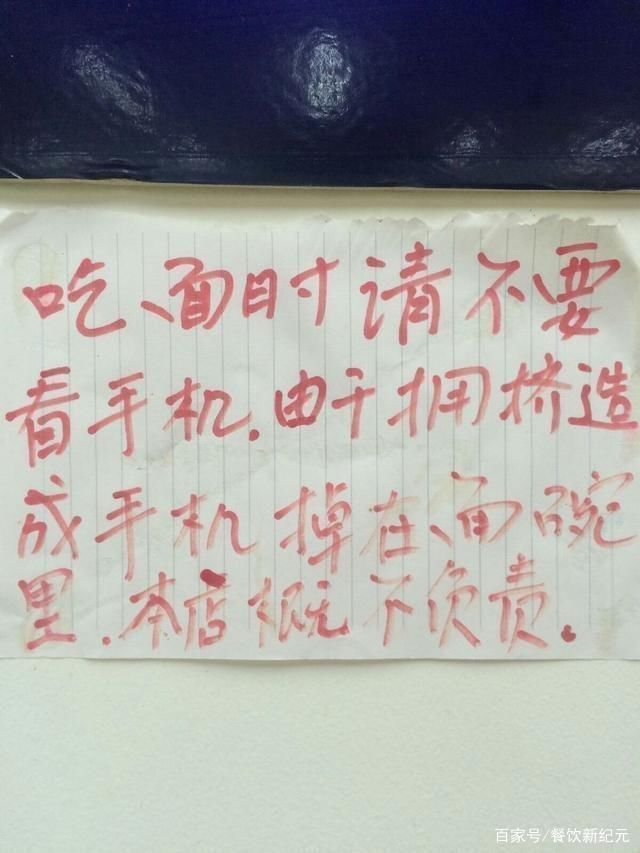 吃面时请不要
看手机.由于拥挤造
成手机掉在面碗
里.本店概不负责.
百家号/餐饮新纪元